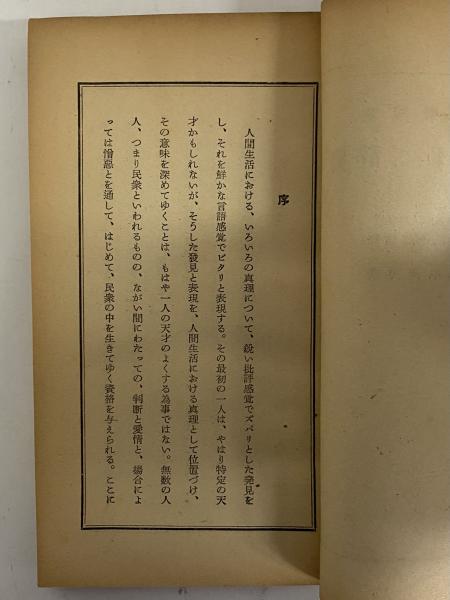 序
人間生活における、いろいろの真理について、鋭い批評感覚でズバリとした発見を
し、それを鮮かな言語感覚でピタリと表現する。その最初の一人は、やはり特定の天
才かもしれないが、そうした發見と表現を、人間生活における真理として位置づけ、
その意味を深めてゆくことは、もはや一人の天才のよくする為事ではない。無数の人
人、つまり民衆といわれるものの、ながい間にわたっての、判断と愛情と、場合によ
っては憎惡とを通して、はじめて、民衆の中を生きてゆく資格を与えられる。ここに